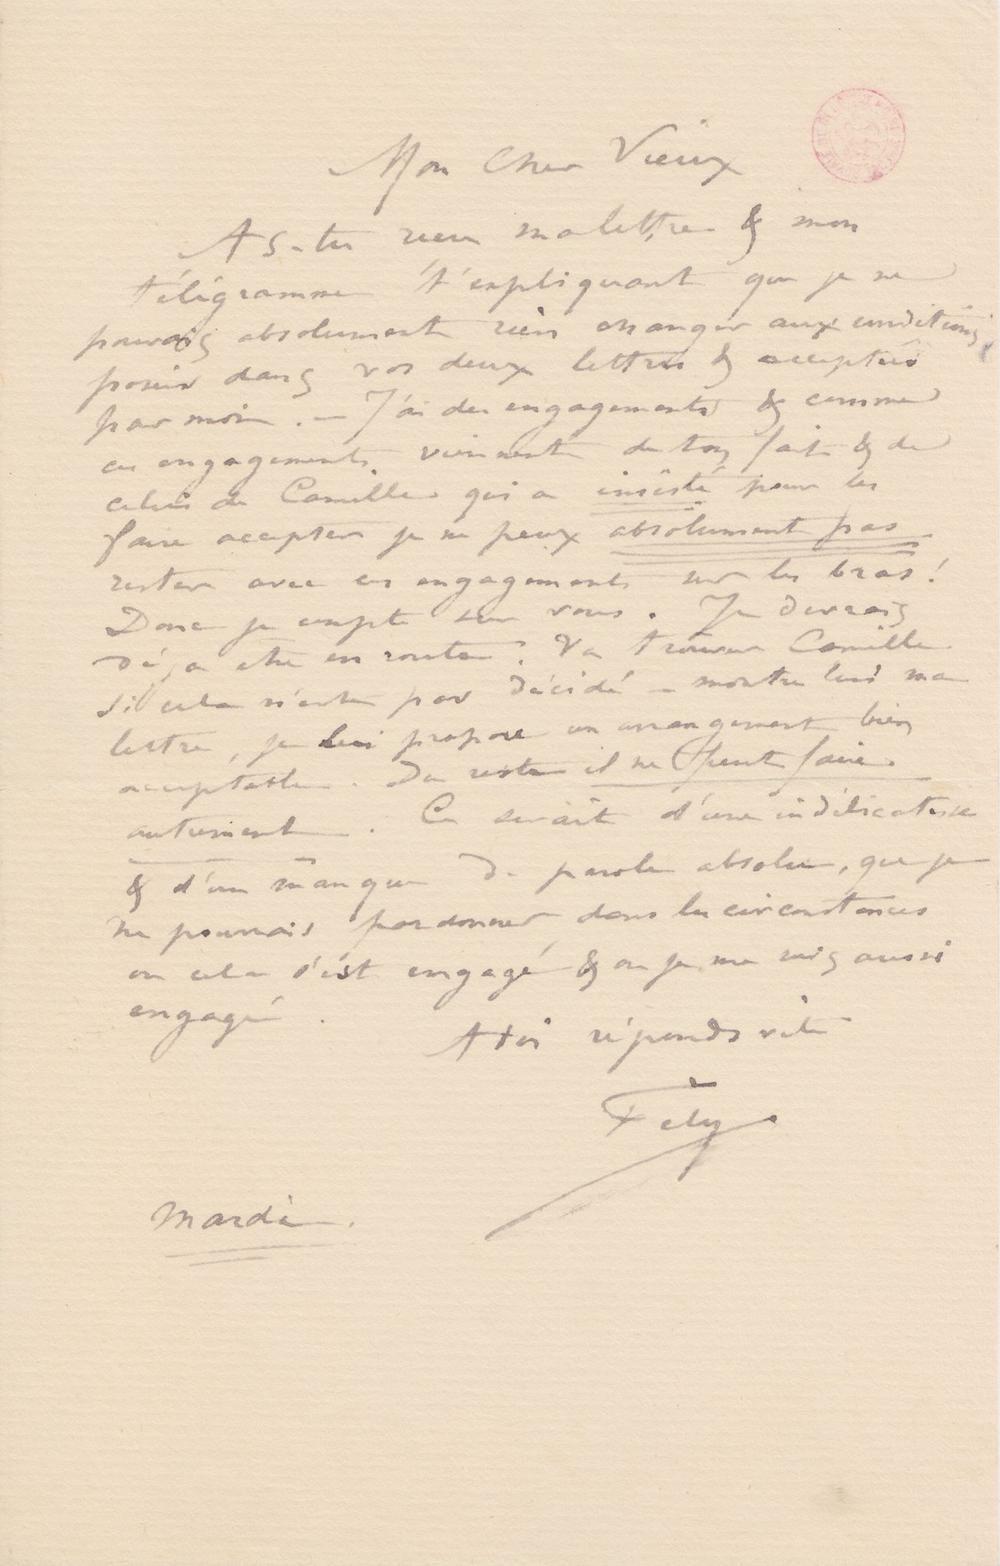 Mon Cher Vieux
As-tu recu ma lettre & mon
télégramme t'expliquant que je ne
pouvais absolument rien changer aux conditions
posées dans vos deux lettres & acceptées
par moi. – J'ai des engagements & comme
ces engagements viennent de ton fait & de
celui de Camille qui a insisté pour les
faire accepter je ne peux absolument pas
rester avec ces engagements sur les bras!
Donc je compte sur vous. Je devrais
déja etre en route! Va trouver Camille
si cela n'est pas décidé – montre lui ma
lettre, je lui propose un arrangement bien
acceptable. Du reste il ne peut faire
autrement. Ce serait d'une indélicatesse
& d'un manque de parole absolu, que je
ne pourrais pardonner dans les circonstances
ou cela s'est engagé & ou je me suis aussi
engagé.
A toi réponds vite
Fély
Mardi.